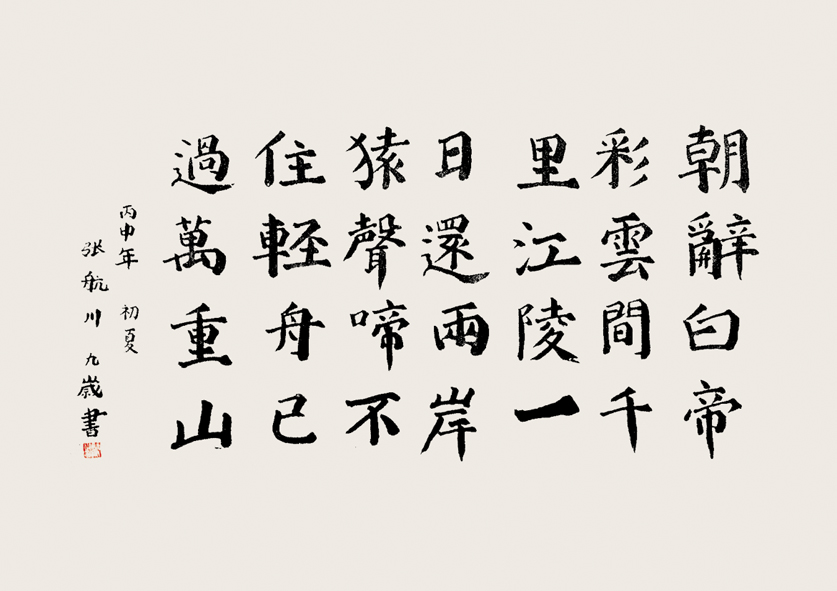 朝辭白帝
彩雲間千
里江陵一
日還兩岸
猿聲啼不
住輕舟已
過萬重山
丙申年 初夏
张航川 九歲書